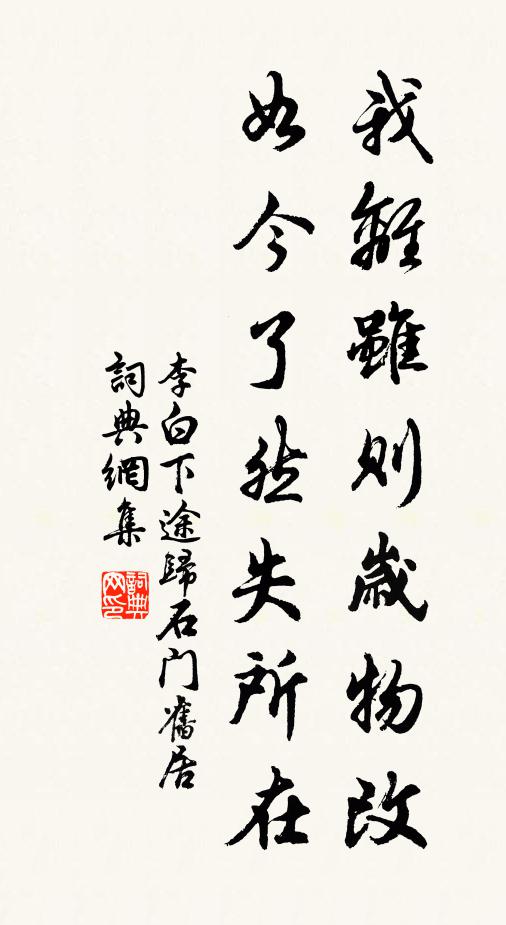 我離雖則歲物改
如今了然失所在
李白下途歸石门舊居
詞典網集
詞典网印